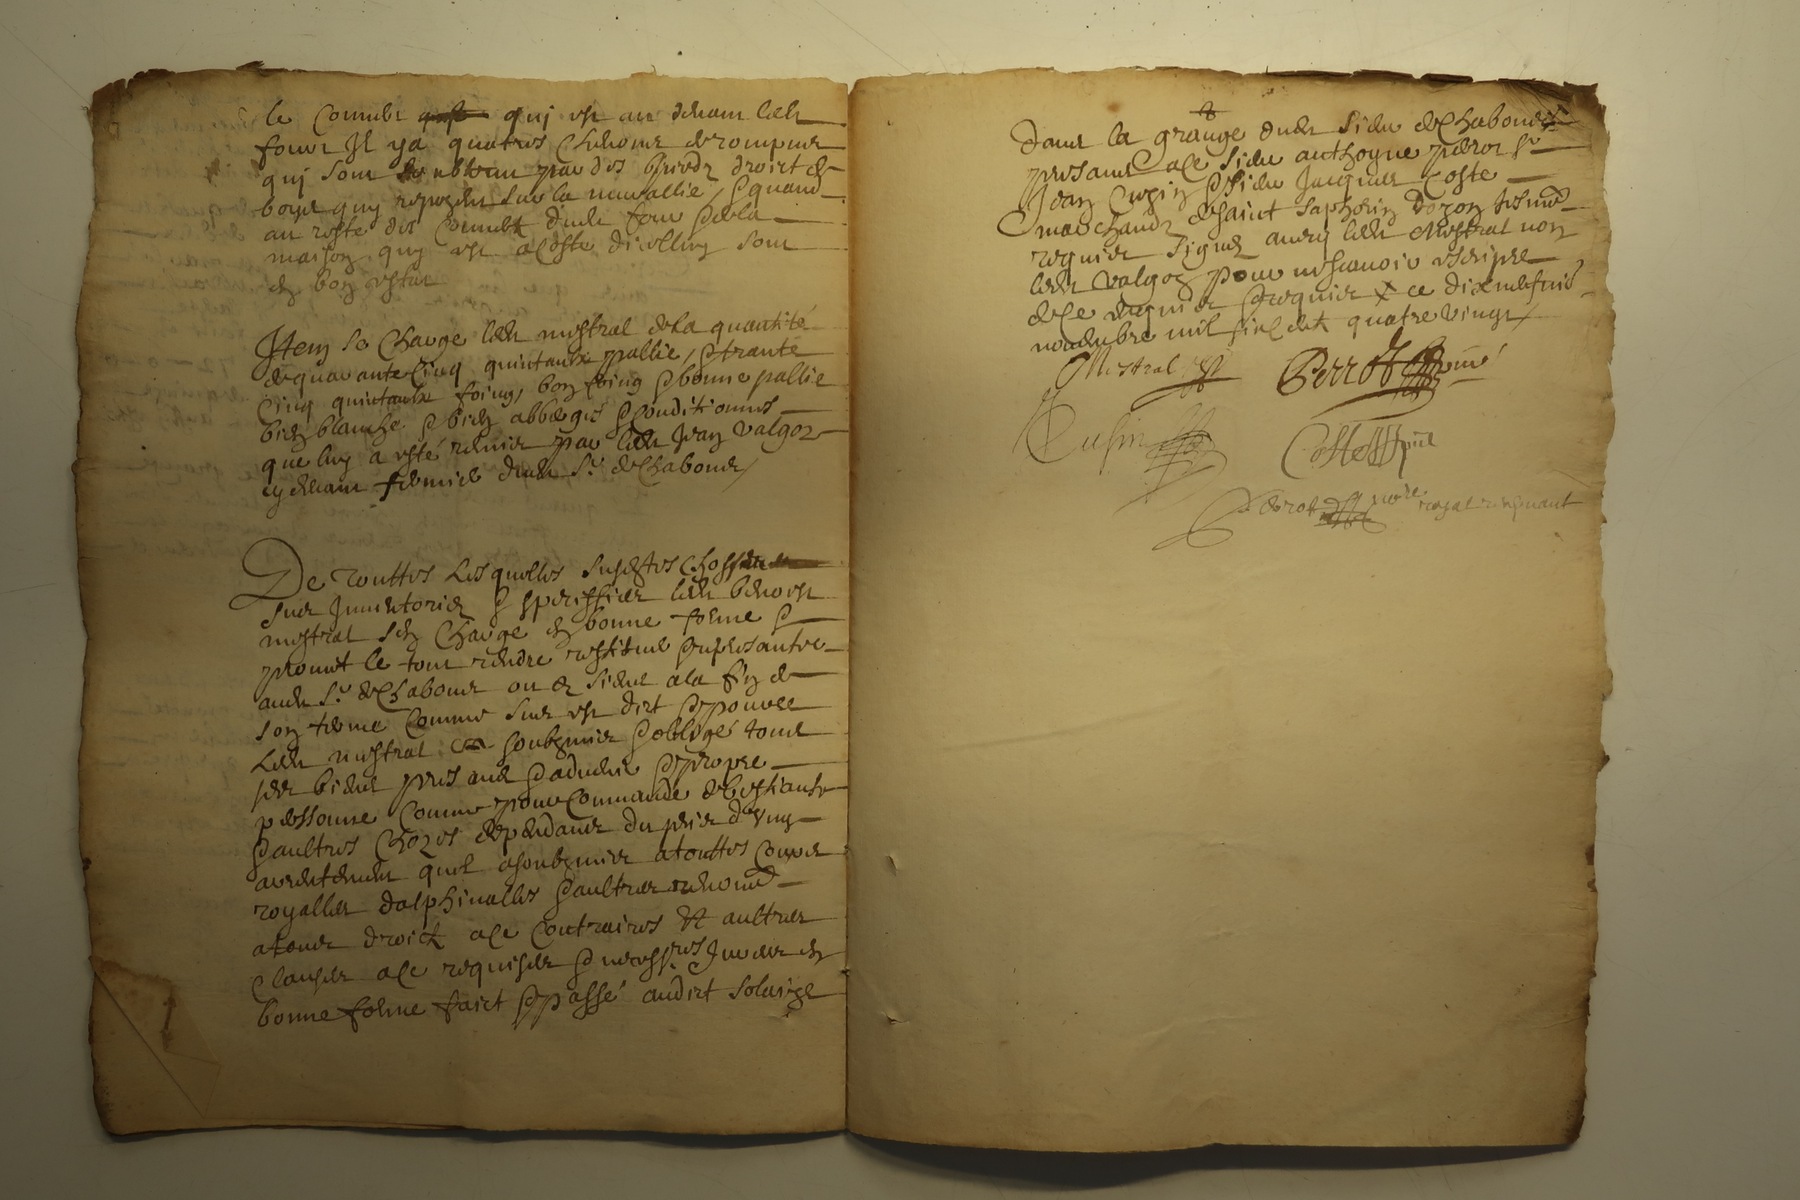 le Couvert qui est au devant ledt
four Il y a quatres chevrons de rompus
qui sont par des pieds droict de
boys quy reposent sur la murallie, Et quand
au reste des Couverts dudt four Et de la
maison quy est a Coste dicelluy sont
en bon estat
Item se Charge ledt mestral de la quantité
de quarante Cinq quintaux pallie, Et trante
Cinq quintaux foing, bon foing Et bonne pallie
bien blanche Et bien Et Conditionnes
que luy a esté remis par ledt Jean Valgoz
cy devant fermier dudt Sr de Chabons /
De touttes Lesquelles susdites Choses
sus Inventories Et speciffies ledt benoist
mestral sen Charge en bonne forme Et
promet le tout rendre restitue Et represanter
audt Sr de Chabons ou es siens a la fin de
son terme Comme sus est dict Et pour ce
Ledt mestral soubzmis Et oblige tous
ses biens presans Et advenir Et propre
personne Comme pour Commande de bestiaux
Et aultres Chozes dependans du prix dung
arrentement quil a soubzmis a touttes Cours
royalles dalphinalles Et aultres renoncé
a tous droictz a ce Contraires Et aultres
Clauses a ce requises Et necessres Jurées en
bonne forme faict Et passé audict Solaize
dans la grange dudt Sieur de Chabons
presans a ce Sieur anthoyne perrot Sr
Jean Cuzin Et Sieur Jacques Coste
marchandz de saint saphorin dozon tesmoins
requis signes avecq ledt Mestral non
ledt Valgoz pour ne scavoir escripre
de ce enquis Et requis ce dixneufvie
novembre mil six centz quatre vingt /
Mestral Perrot
Cusin Coste
Perrot royal recepvant